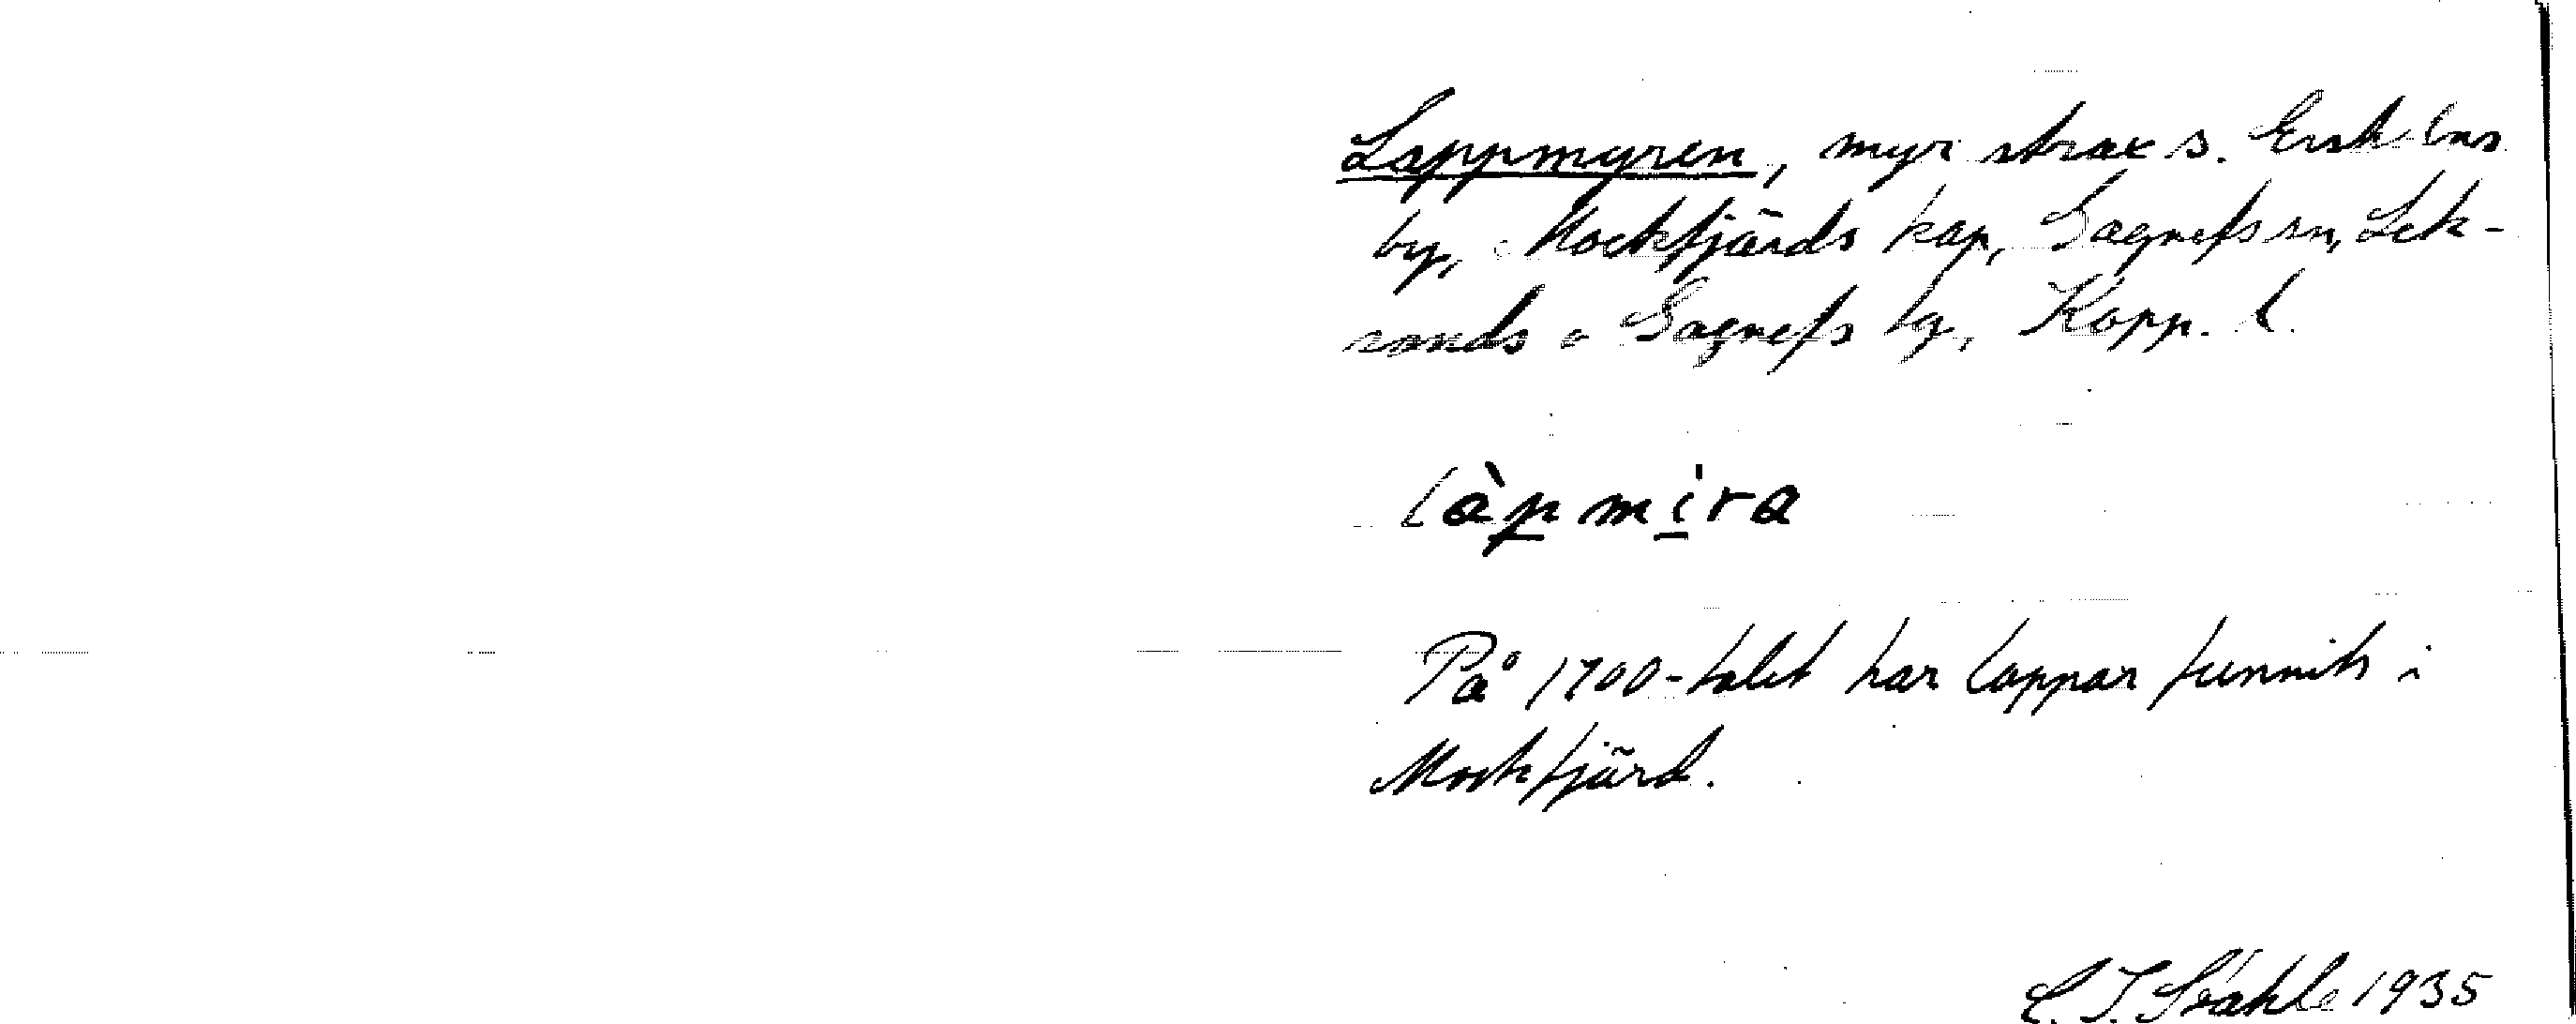 Lappmyren, myr strax s. Ersholns
by, Mockfjärds kap, Gagnefs sn, Lek-
sands o Gagnefs tg, Kopp. l.
làpmira
På 1700-talet har lappar funnits i
Mockfjärd.
C. I. Ståhle 1935